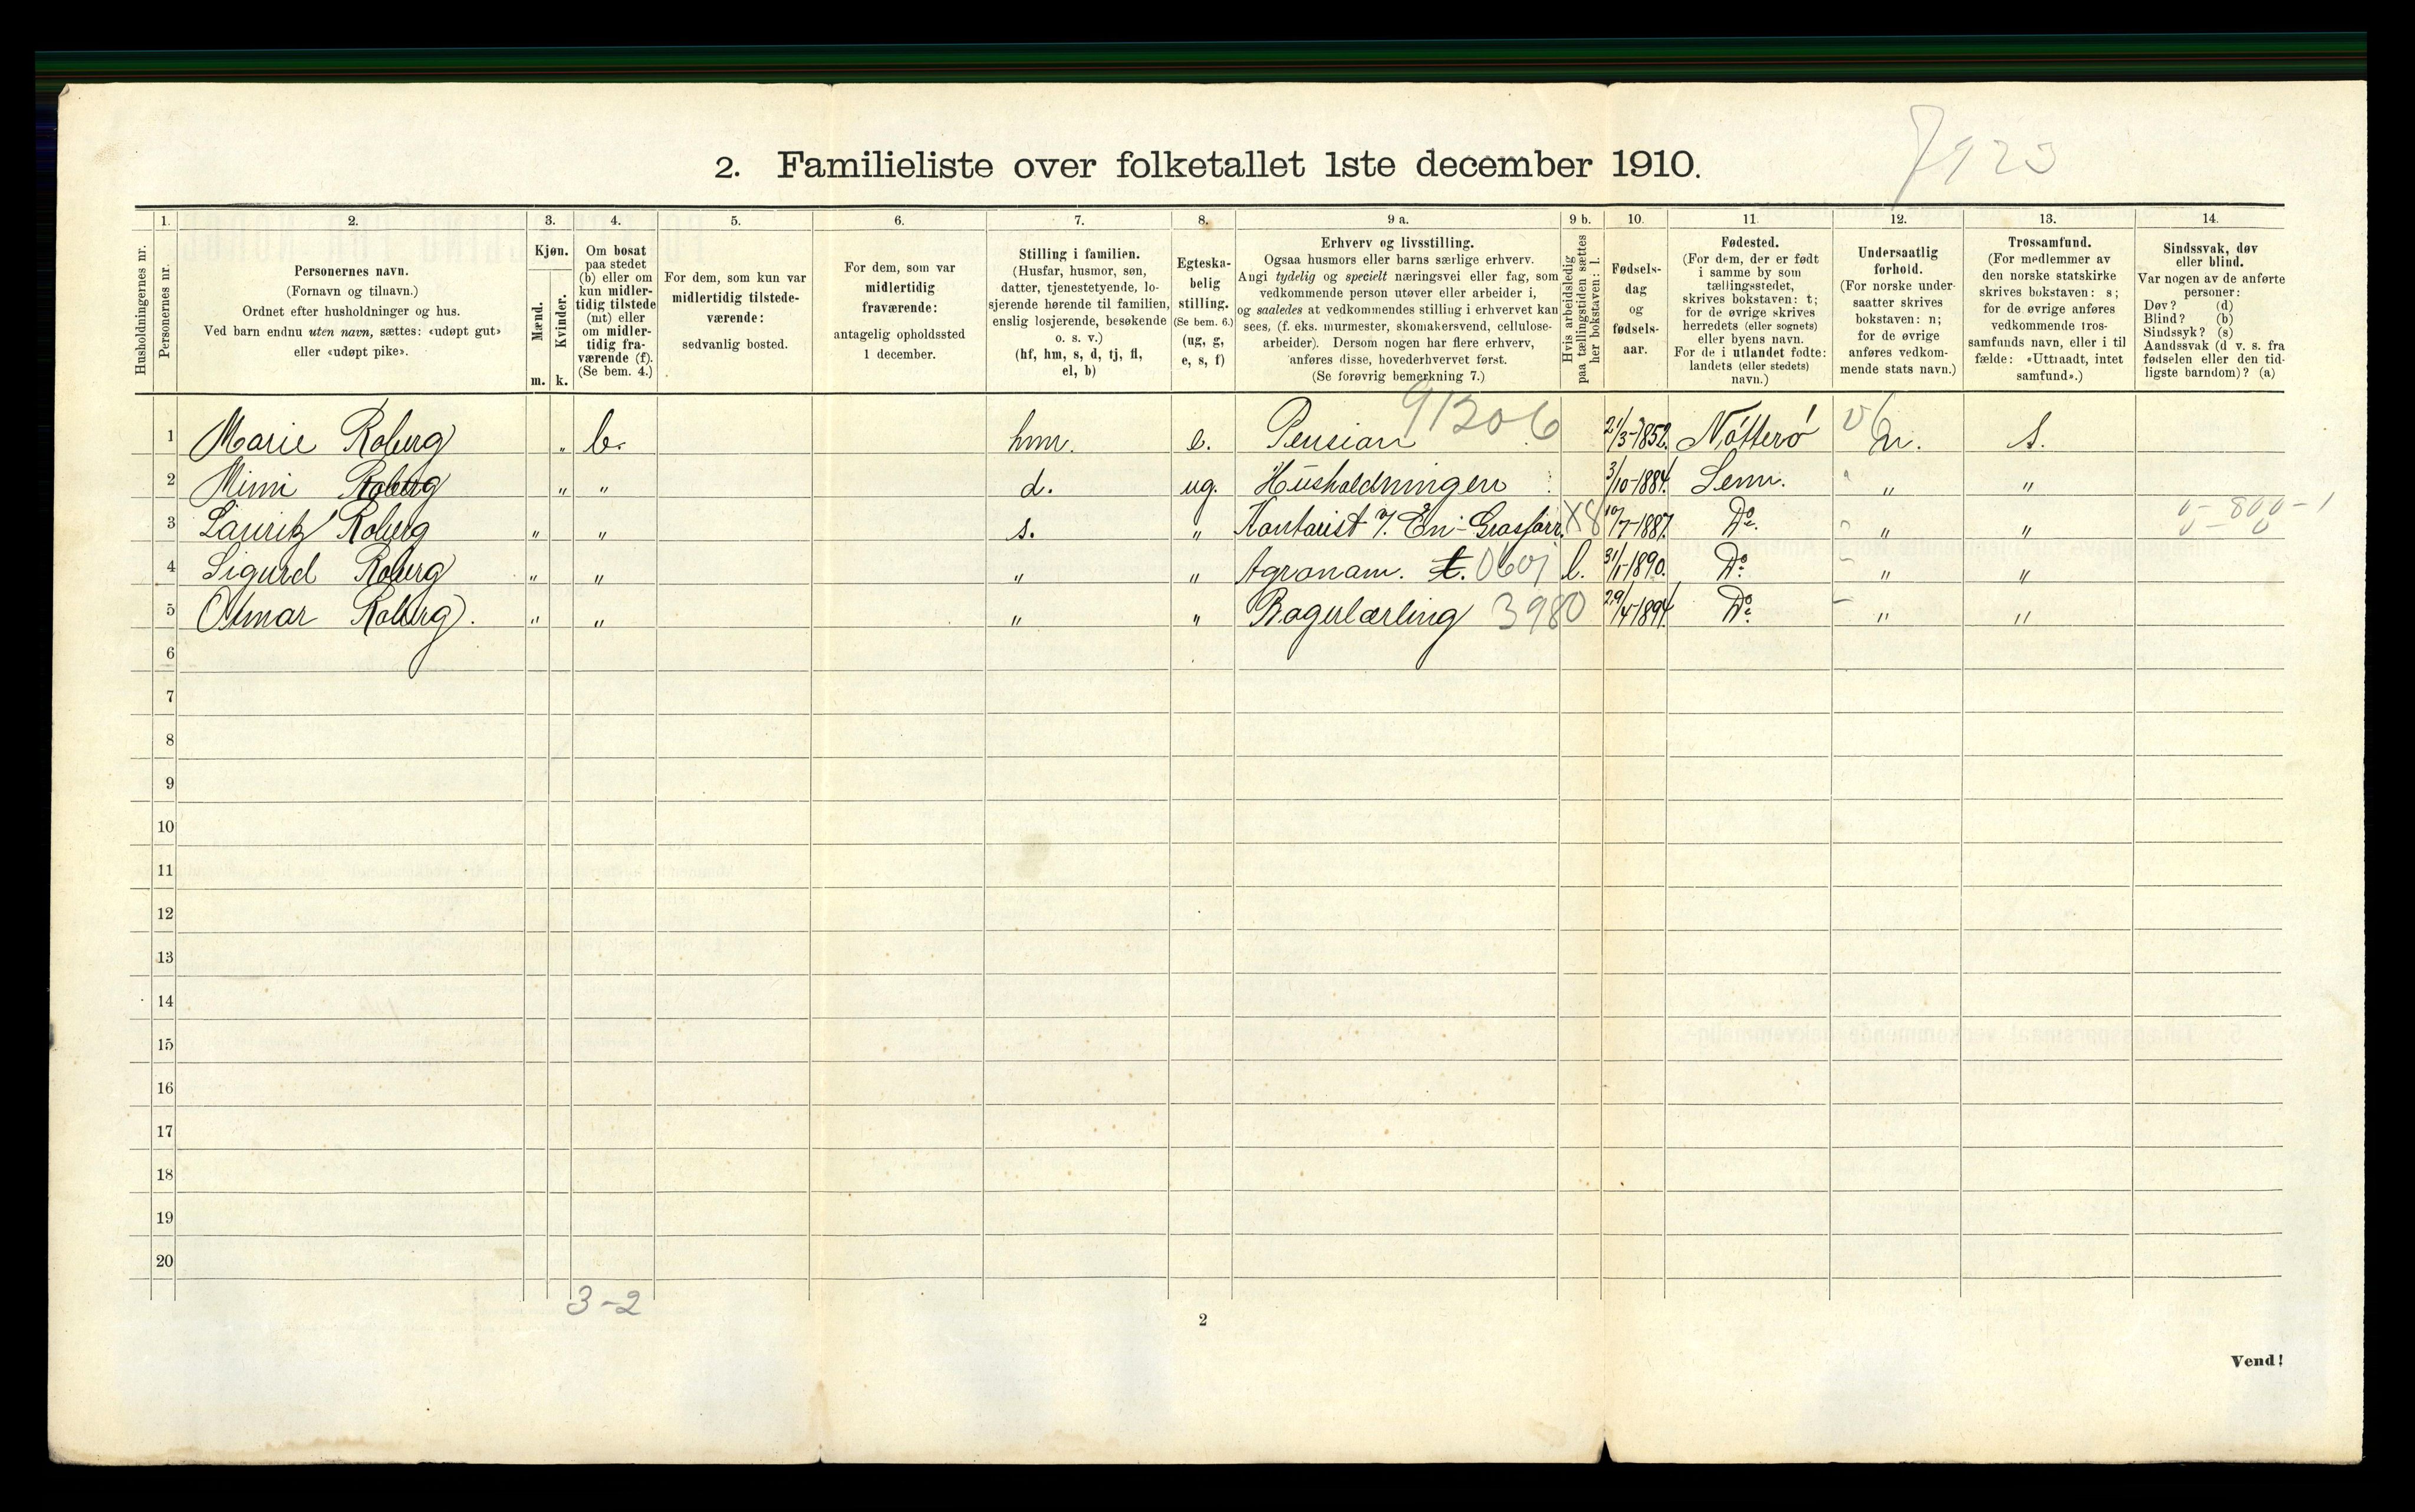 7923
2. Familieliste over folketallet 1ste december 1910.
Husholdningernes nr.
1. Personernes nr.
2. Personernes navn. (Fornavn og tilnavn.) Ordnet efter husholdninger og hus. Ved barn endnu uten navn, sættes: «udøpt gut» eller «udøpt pike».
3. Kjøn. Mænd. m. Kvinder. k.
4. Om bosat paa stedet (b) eller om kun midler-tidig tilstede (mt) eller om midler-tidig fra-værende (f). (Se bem. 4.)
5. For dem, som kun var midlertidig tilstede-værende: sedvanlig bosted.
6. For dem, som var midlertidig fraværende: antagelig opholdssted 1 december.
7. Stilling i familien. (Husfar, husmor, søn, datter, tjenestetyende, lo-sjerende hørende til familien, enslig losjerende, besøkende o. s. v.) (hf, hm, s, d, tj, fl, el, b)
8. Egteska-belig stilling. (Se bem. 6.) (ug, g, e, s, f)
9 a. Erhverv og livsstilling. Ogsaa husmors eller barns særlige erhverv. Angi tydelig og specielt næringsvei eller fag, som vedkommende person utøver eller arbeider i, og saaledes at vedkommendes stilling i erhvervet kan sees, (f. eks. murmester, skomakersvend, cellulose-arbeider). Dersom nogen har flere erhverv, anføres disse, hovederhvervet først. (Se forøvrig bemerkning 7.)
9 b. Hvis arbeidsledig paa tællingstiden sættes her bokstaven: l.
10. Fødsels-dag og fødsels-aar.
11. Fødested. (For dem, der er født i samme by som tællingsstedet, skrives bokstaven: t; for de øvrige skrives herredets (eller sognets) eller byens navn. For de i utlandet fødte: landets (eller stedets) navn.)
12. Undersaatlig forhold. (For norske under-saatter skrives bokstaven: n; for de øvrige anføres vedkom-mende stats navn.)
13. Trossamfund. (For medlemmer av den norske statskirke skrives bokstaven: s; for de øvrige anføres vedkommende tros-samfunds navn, eller i til fælde: «Uttraadt, intet samfund».)
14. Sindssvak, døv eller blind. Var nogen av de anførte personer: Døv? (d) Blind? (b) Sindssyk? (s) Aandssvak (d v. s. fra fødselen eller den tid-ligste barndom)? (a)
1 Marie Roberg " b. hmr. e. Pension 91206 21/3-1852. Nøtterø n. s.
2 Mimi Roberg " " d. ug. Husholdningen 3/10-1884. Sem. " "
3 Lauritz Roberg " " s. " Kontorist X8 10/7-1887. Do. " "
4 Sigurd Roberg " " " " Agronom. t. l. 31/1-1890. Do. " "
5 Otmar Roberg. " " " " Bagerlærling 3980 29/4-1894. Do. " "
6
7
8
9
10
11
12
13
14
15
16
17
18
19
20
3-2
2
Vend!